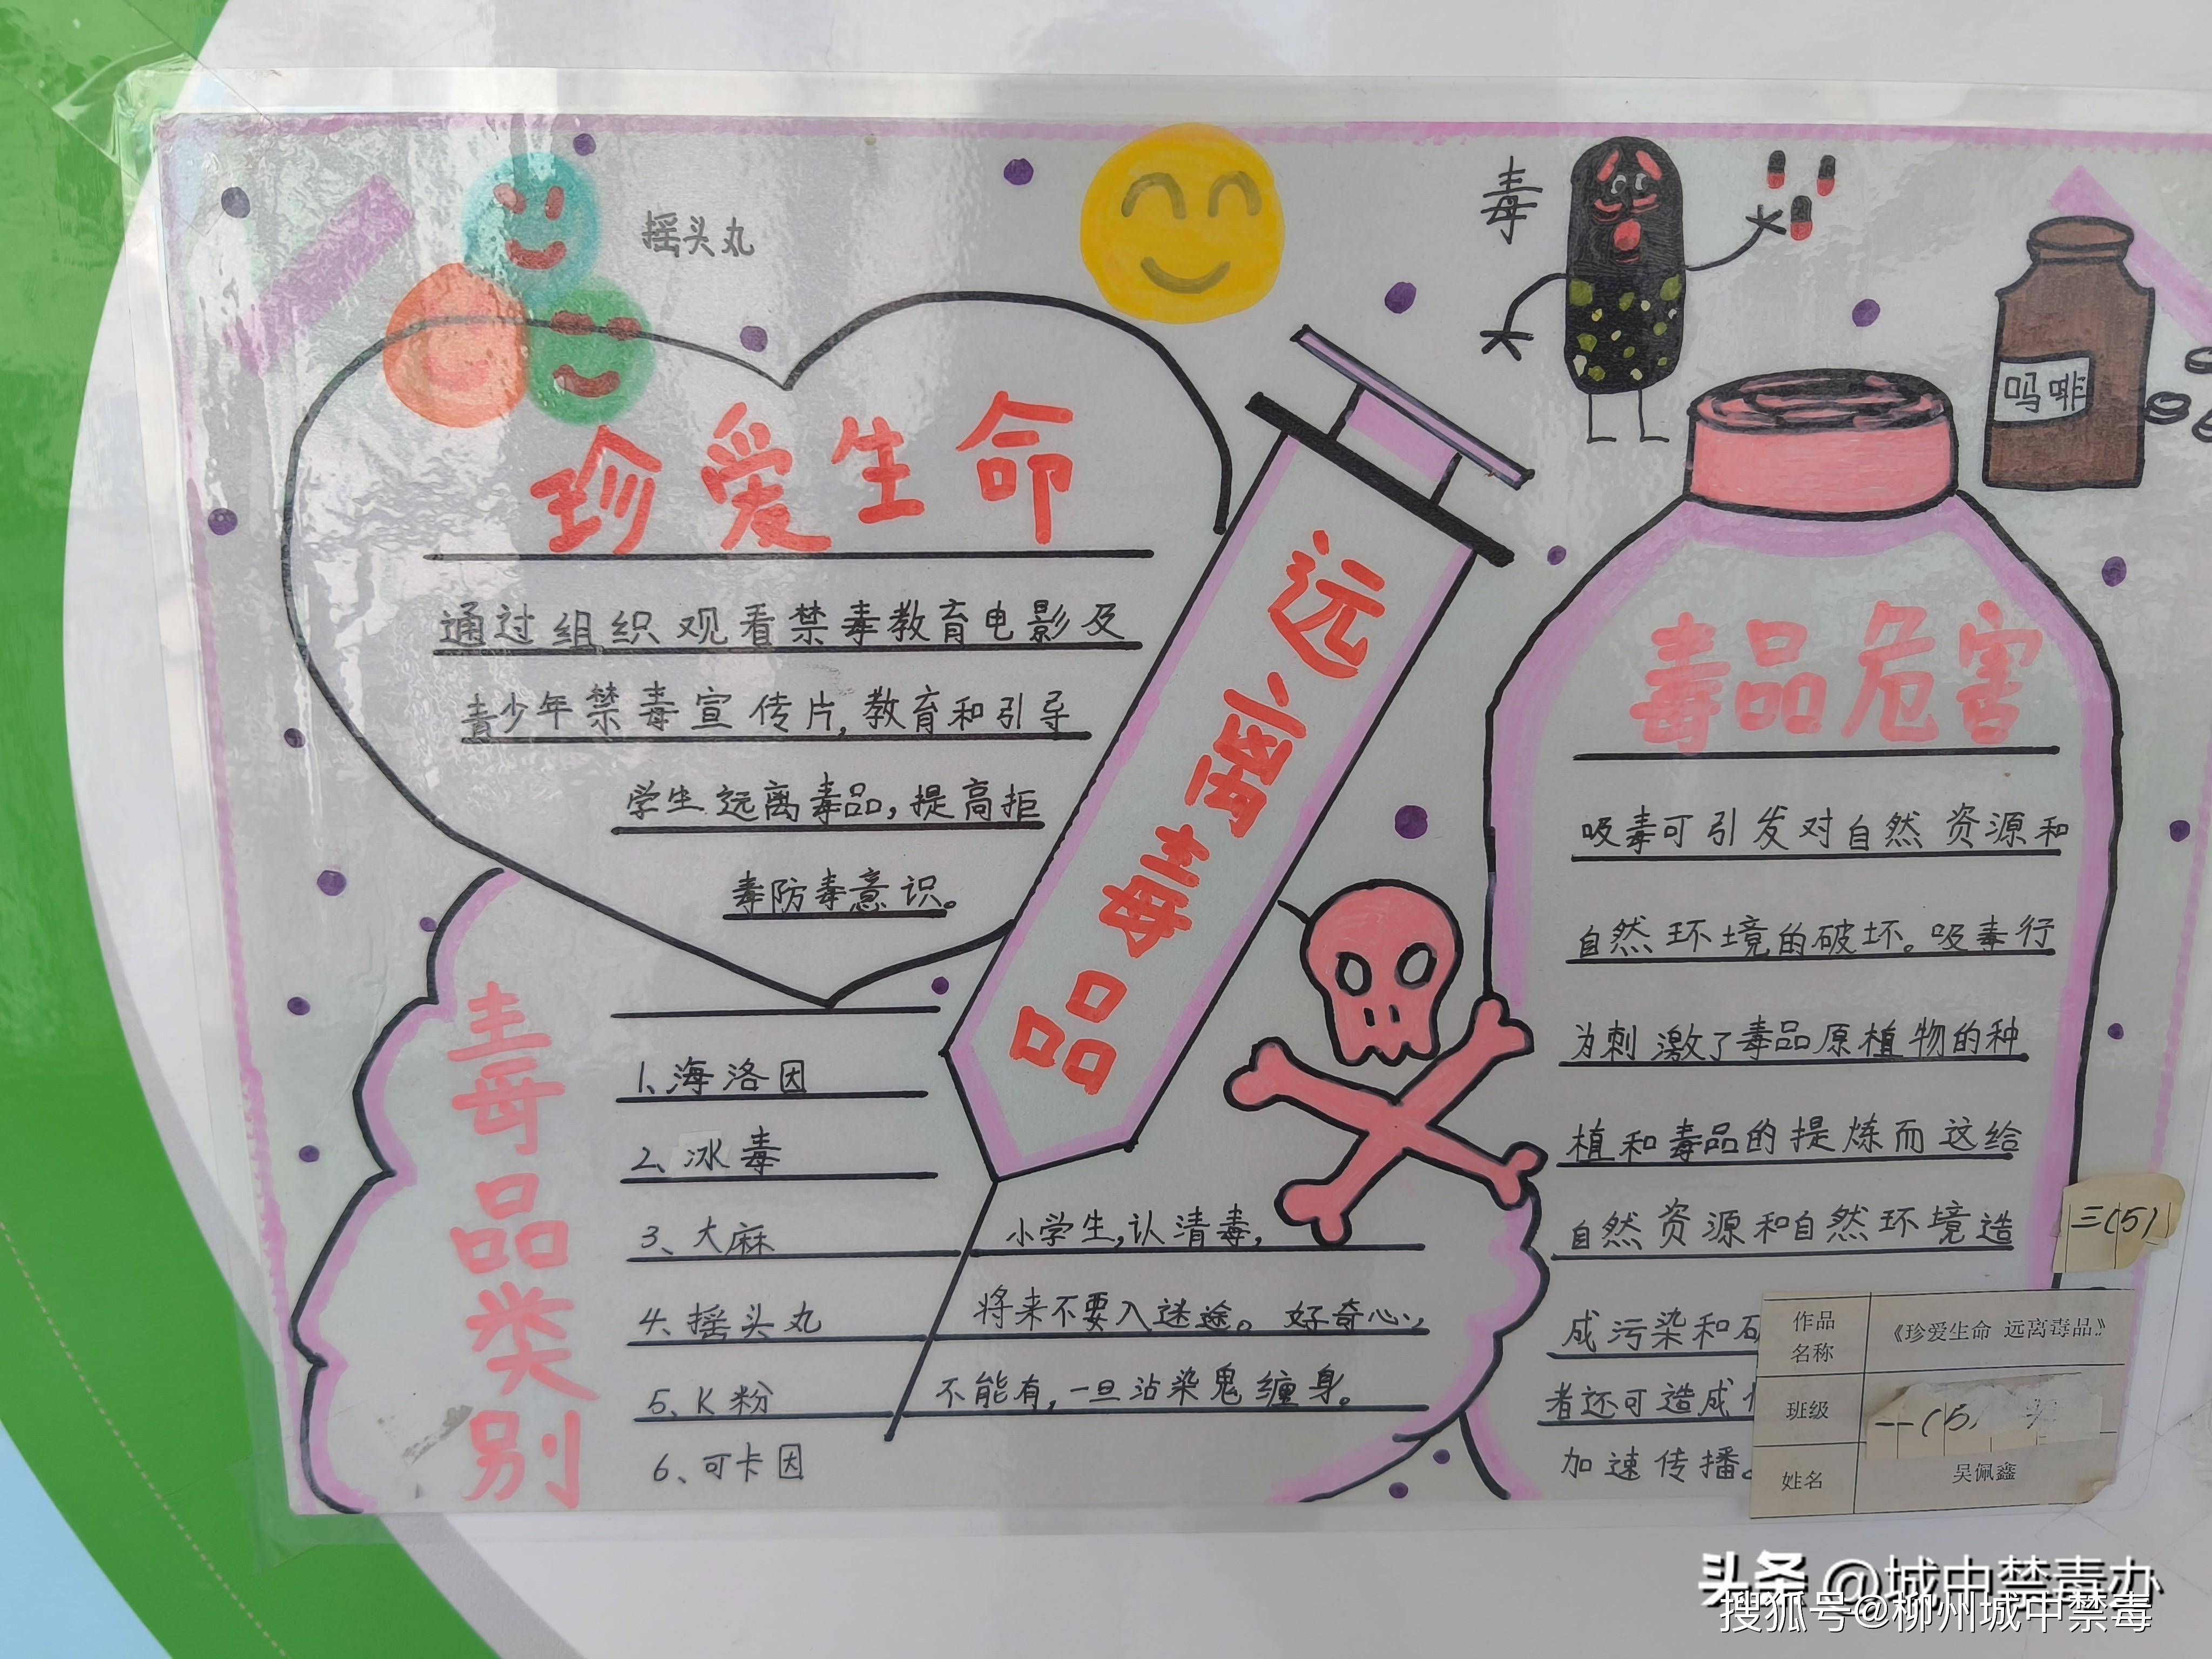 摇头丸
毒
吗啡
珍爱生命
通过组织观看禁毒教育电影及
青少年禁毒宣传片,教育和引导
学生远离毒品,提高拒
毒防毒意识。
远离毒品
毒品类别
1、海洛因
2、冰毒
3、大麻
4、摇头丸
5、K粉
6、可卡因
小学生,认清毒,
将来不要入迷途。好奇心,
不能有,一旦沾染鬼缠身。
毒品危害
吸毒可引发对自然资源和
自然环境的破坏。吸毒行
为刺激了毒品原植物的种
植和毒品的提炼而这给
自然资源和自然环境造
成污染和
者还可造成
加速传播。
三(5)
作品名称 《珍爱生命 远离毒品》
班级 (5)
姓名 吴佩鑫
头条 @城中禁毒办
搜狐号@柳州城中禁毒